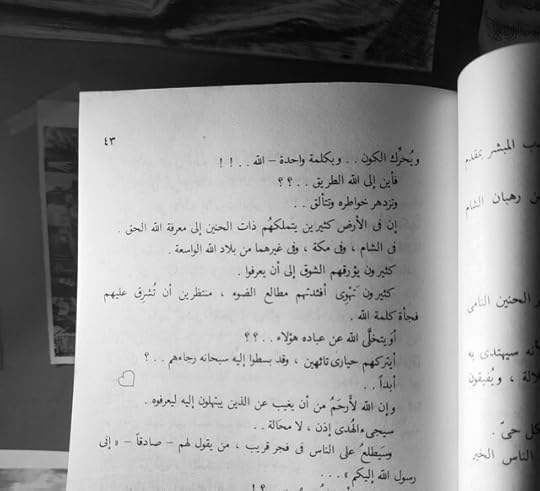 ٤٣
ويُحرِّك الكون . . وبكلمة واحدة – الله . . ! !
فأين إلى الله الطريق . . ؟ ؟
وتزدهر خواطره وتتألق . .
إن فى الأرض كثيرين يتملكهُم ذات الحنين إلى معرفة الله الحق .
فى الشام ، وفى مكة ، وفى غيرهما من بلاد الله الواسعة .
كثيرون يؤرقهم الشوق إلى أن يعرفوا .
كثيرون تَهْوِى أفئدتهم مطالع الضوء ، منتظرين أن تُشرِق عليهم
فجأة كلمة الله .
أوَيتخلَّى الله عن عباده هؤلاء . . ؟ ؟
أيتركهم حيارى تائهين ، وقد بسطوا إليه سبحانه رجاءهم . . ؟
أبداً . .
وإن الله لأَرحَمُ من أن يغيب عن الذين يبتهلون إليه ليعرفوه .
سيجىء الهُدى إذن ، لا محَالة . .
وسَيَطلعُ على الناس فى فجر قريب ، من يقول لهم – صادقاً – « إنى
رسول الله إليكم » . . .
المبشر بمقدم
رهبان الشام
الحنين النامى
سيهتدى به
، ويُفيقون
كل حىّ .
الناس الخير